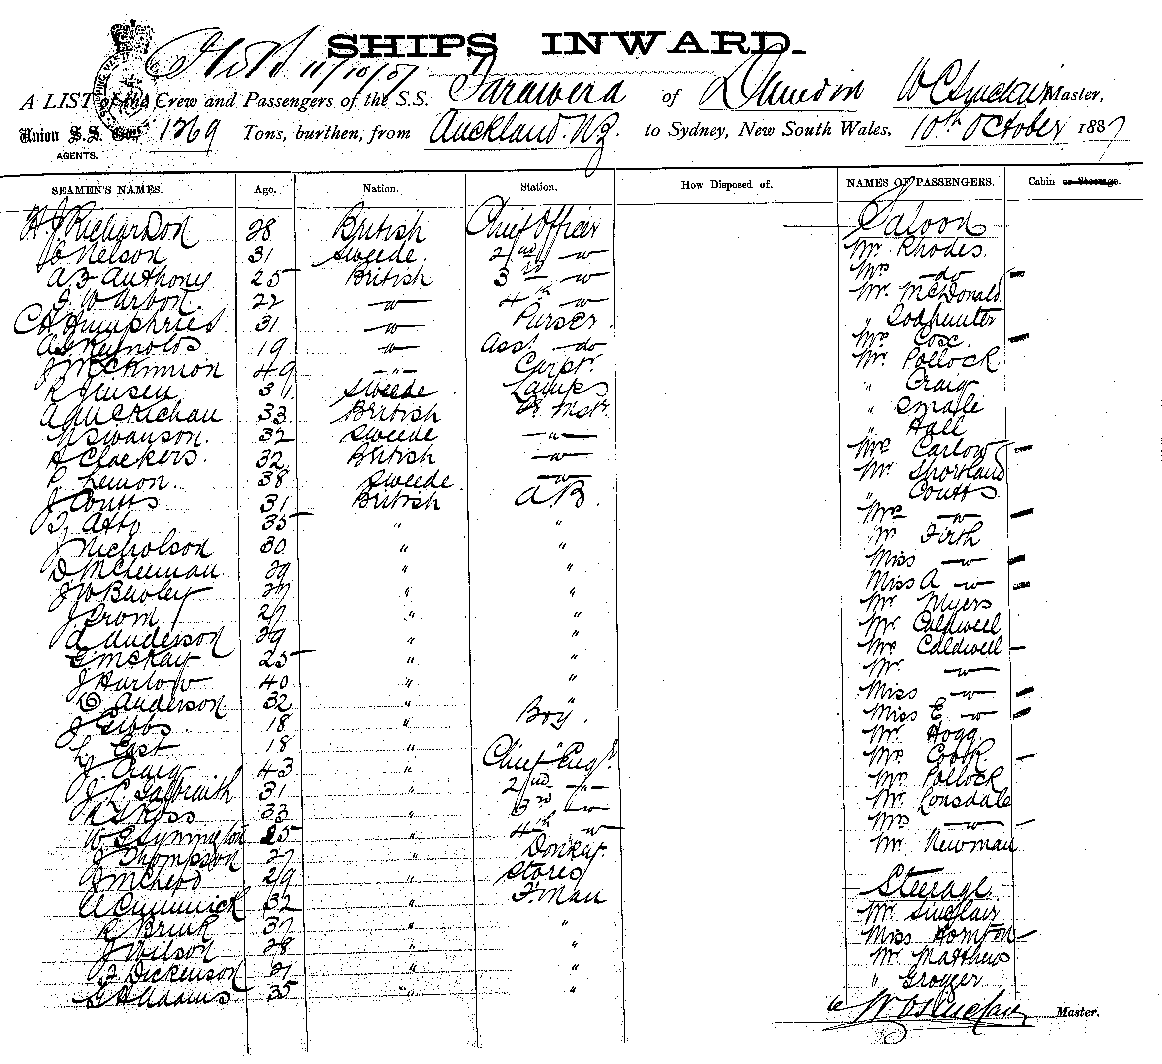 SHIPS INWARD.
11/10/87
A LIST of the Crew and Passengers of the S.S. Tarawera of Dunedin W C Sinclair Master,
Union S.S. Coy 1269 Tons, burthen, from Auckland. NZ. to Sydney, New South Wales, 10th October 1887
AGENTS.
SEAMEN'S NAMES. Age. Nation. Station. How Disposed of. NAMES OF PASSENGERS. Cabin or Steerage.
H. J. Richardson 28 British Chief Officer Saloon
Nelson 31 Sweede. 2nd —"— Mr. Rhodes.
A. Anthony 25 British 3rd —"— Mrs —do—
22 —"— 4th —"— Mr. McDonald
C H Humphries 31 —"— Purser "
Reynolds 19 —"— Asst. —do— Mrs Cox.
J McKinnon 49 —"— Carptr. Mr. Pollock
R Jensen Sweede Lamps " Craig
33 British " Smale
Swanson. 32 Sweede —"— " Hall
32 British —"— Mrs Carlow
P Lemon. 38 Sweede —"— Mr. Shortland
J Coutts 31 British A.B. " Coutts
35 " " Mrs —"—
J Nicholson 30 " " Mr Firth
29 " " Miss —"—
J W 27 " " Miss A —"—
J 27 " " Mr. Myers
A Anderson 29 " " Mr. Caldwell
McKay 25 " " Mrs Caldwell
J Harlow 40 " " Mr. —"—
Anderson 32 " " Miss —"—
J Gibbs 18 " Boy. Miss E —"—
East 18 " " Mr. Hogg
J Craig 43 " Chief Engr. Mrs. Cook
J Galbraith 31 " 2nd —"— Mr. Pollock
Ross 33 " 3rd —"— Mr. Lonsdale
W Symington 25 " 4th —"— Mrs —"—
J Thompson 27 " Donkey. Mr Newman
J McLeod 29 " Stores
32 " F.man Steerage.
R Brink 37 " " Mr. Sinclair
J Wilson 28 " " Miss
Dickenson 21 " " Mr Matthews
Adams 35 " "
W C Sinclair Master.